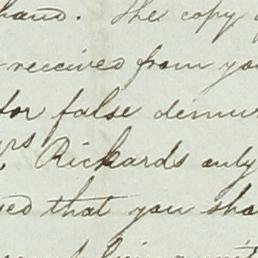 hand. The copy
received from you
for false demur
rs Rickards only
sed that you sho